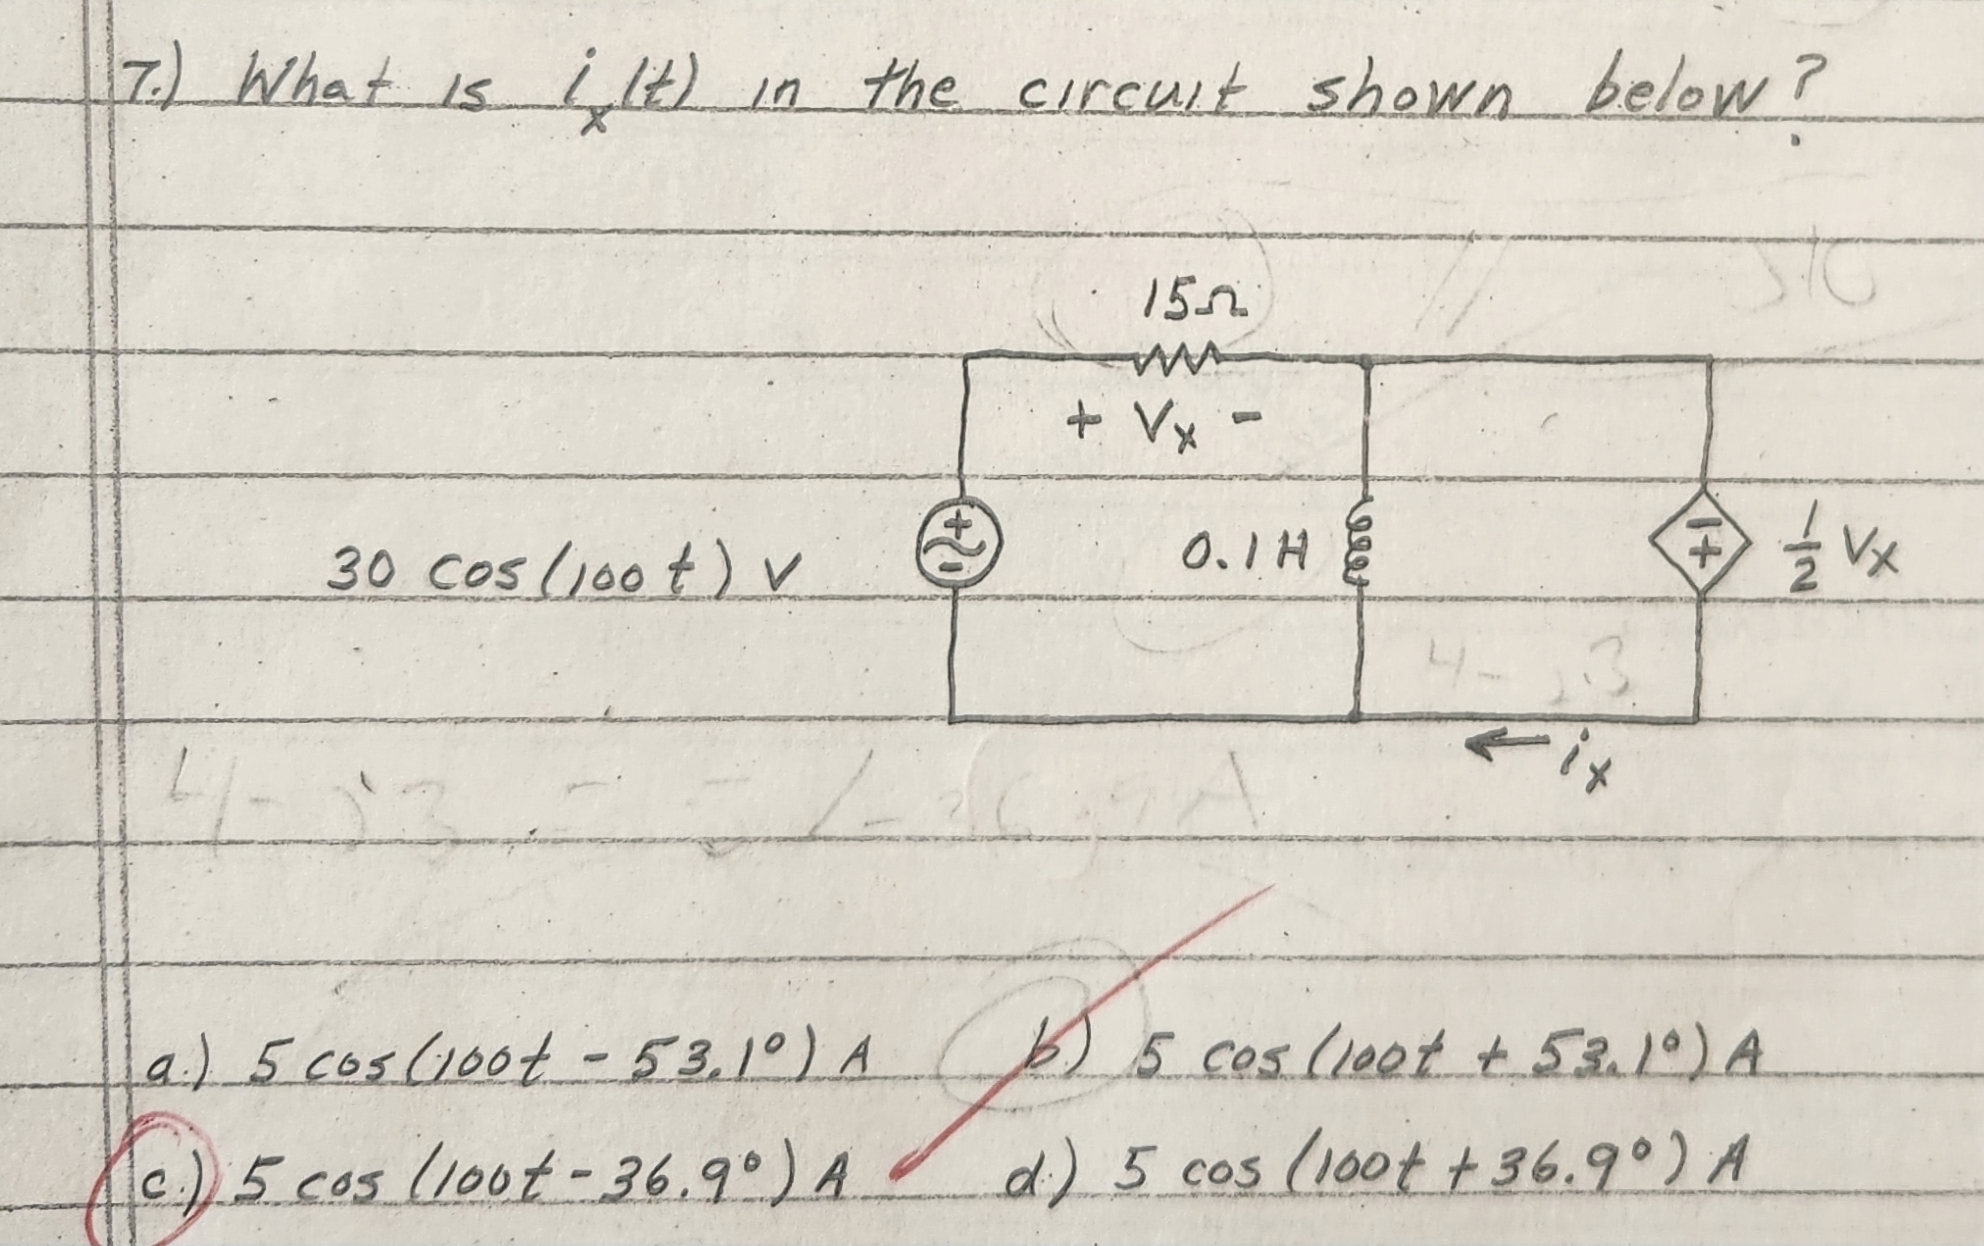 7.) What is iₓ(t) in the circuit shown below?
15Ω
+ Vₓ -
30 cos(100t) V
+
-
0.1H
-
+
1/2 Vₓ
← iₓ
a.) 5 cos(100t - 53.1°) A b.) 5 cos(100t + 53.1°) A
c.) 5 cos(100t - 36.9°) A d.) 5 cos(100t + 36.9°) A